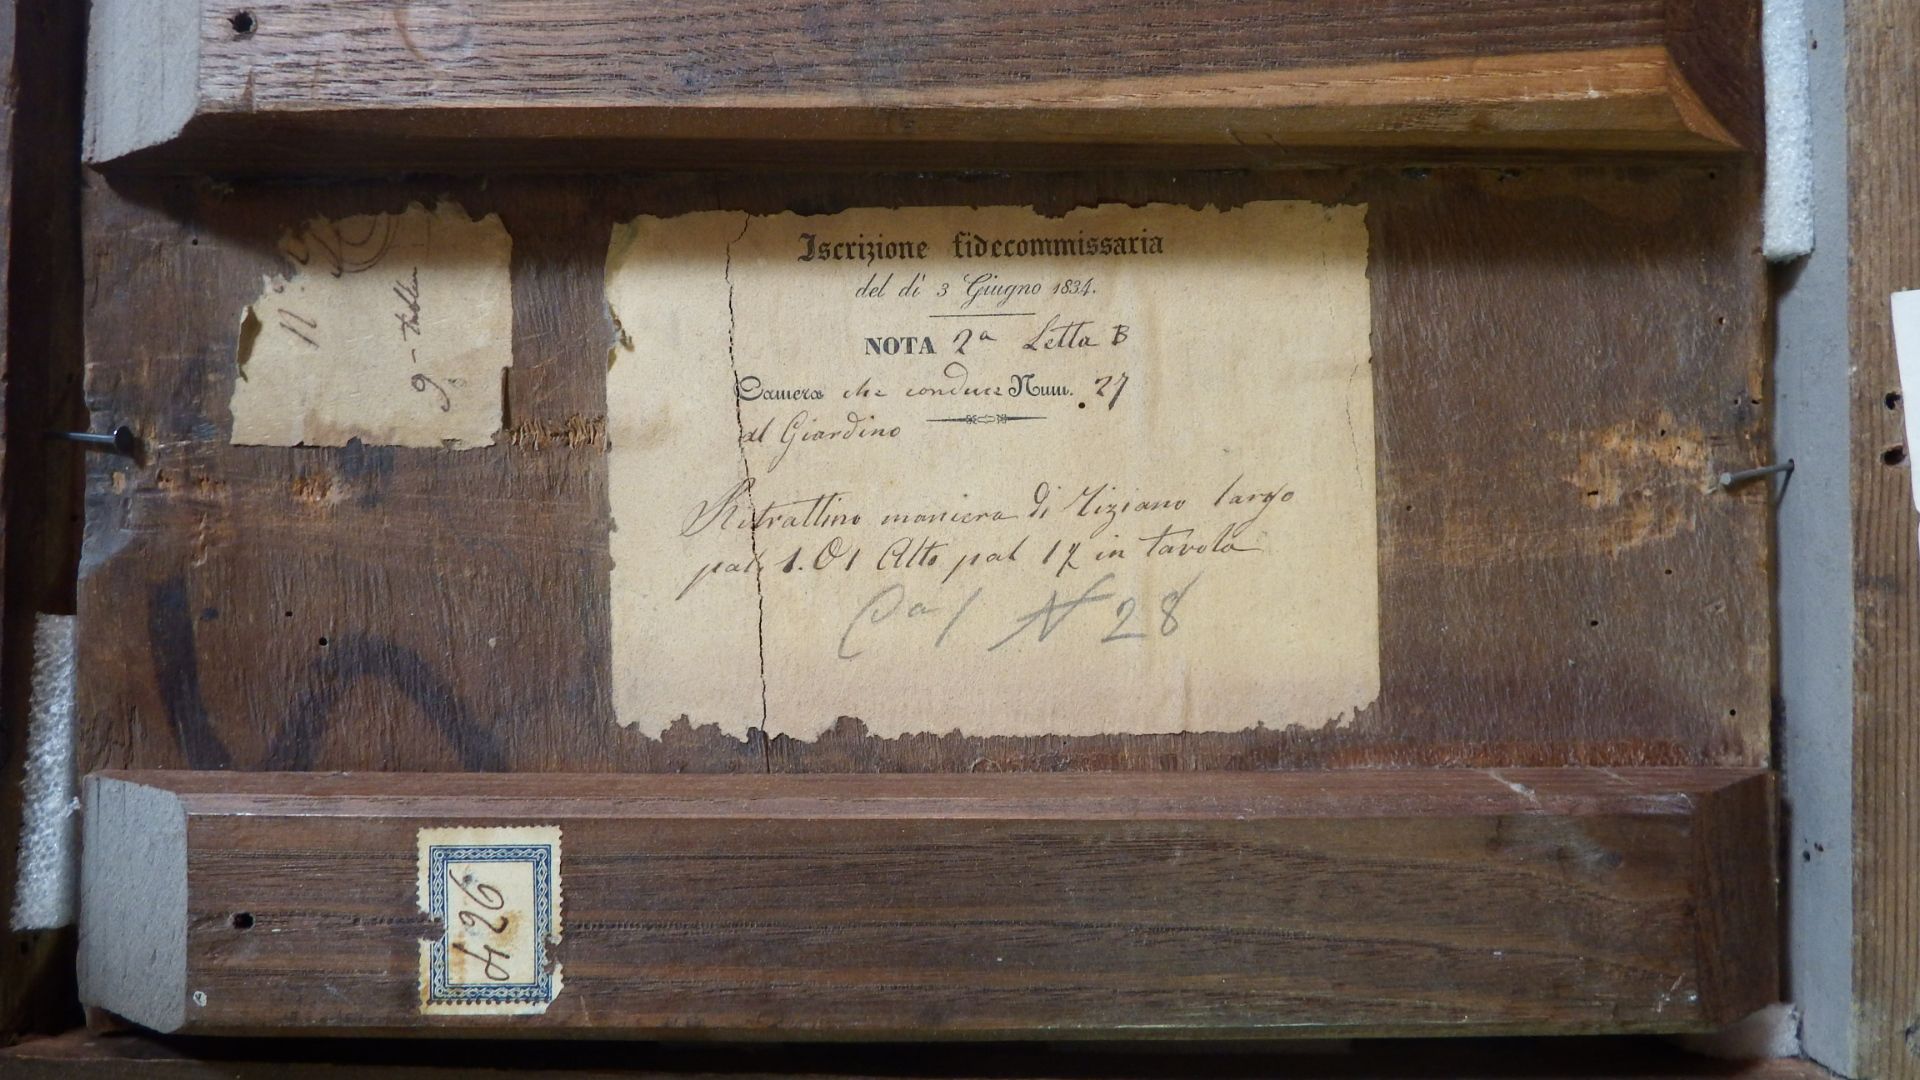 Iscrizione fidecommissaria
del dì 3 Giugno 1834.
NOTA 2ª Letta B
Camera che conduce Num. 27
al Giardino
Ritrattino maniera di Tiziano largo
pal. 1.01 Alto pal 1 in tavola
N 28
9
426